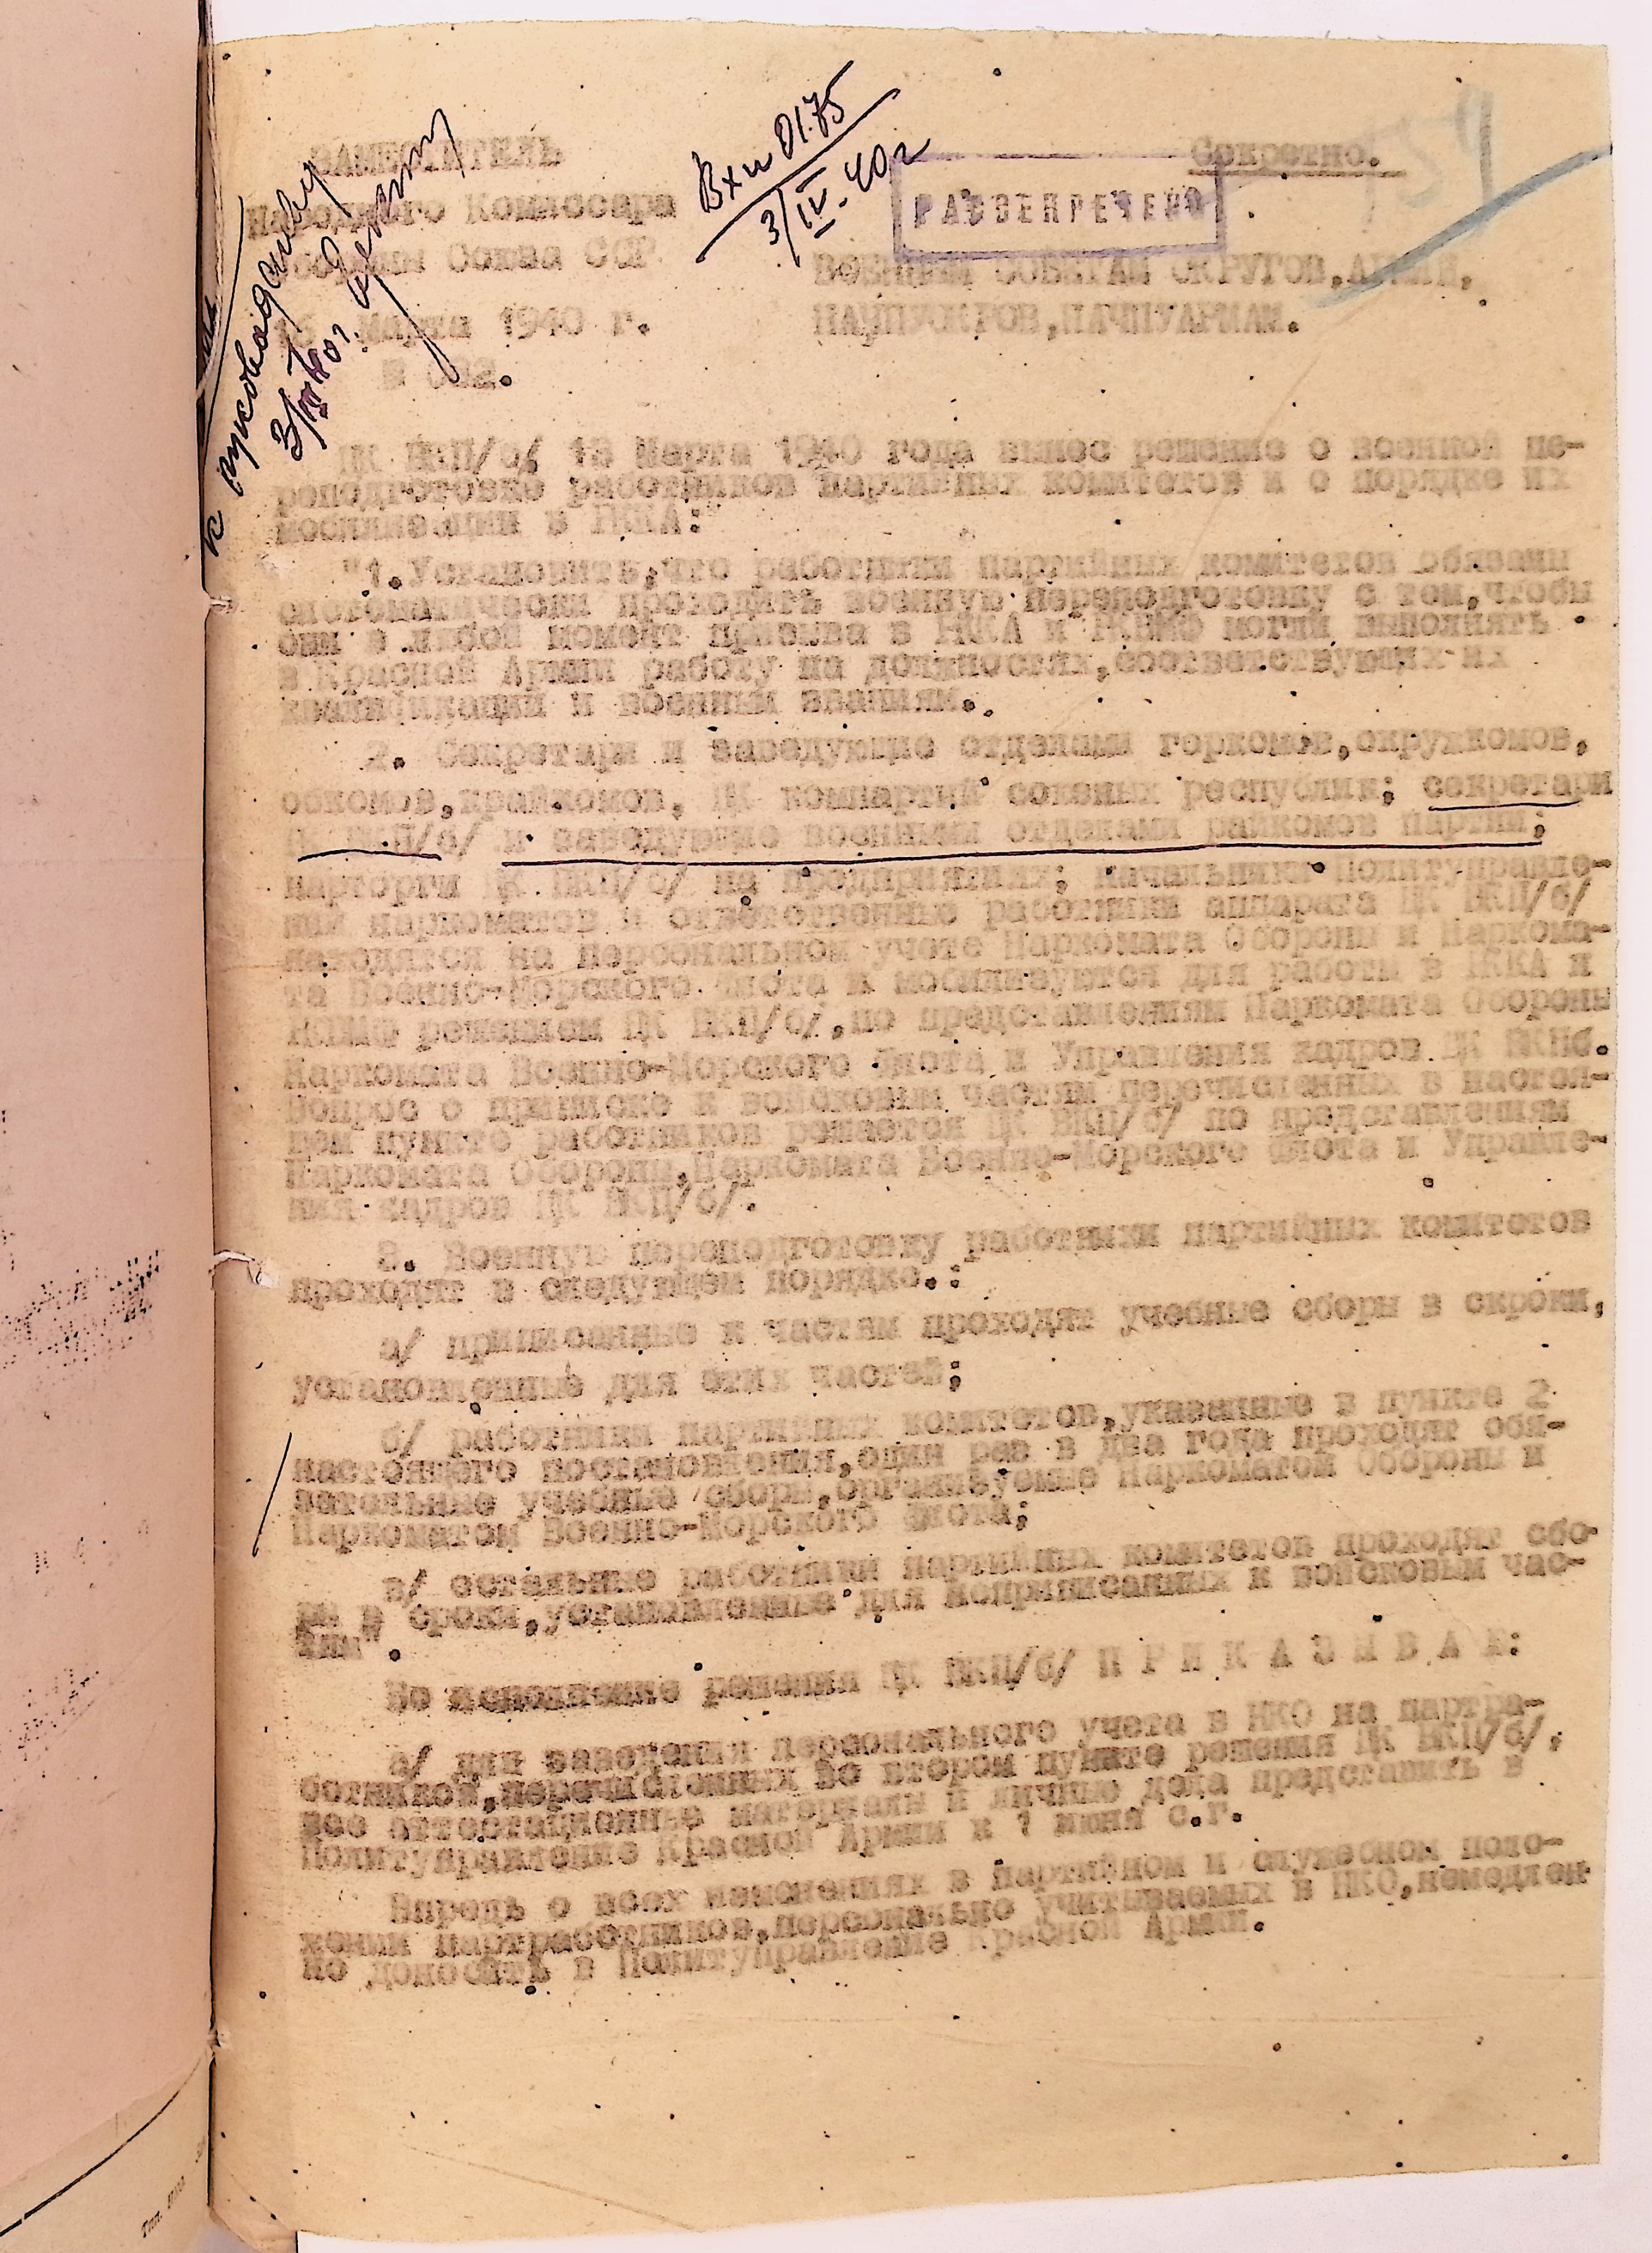 Вх № 0175
3/IV-40 г
Секретно.
РАССЕКРЕЧЕНО
ЗАМЕСТИТЕЛЬ
Народного Комиссара
Обороны Союза ССР
Марта 1940 г.
ВОЕННЫМ СОВЕТАМ ОКРУГОВ, АРМИЙ,
НАЧПУОКРОВ, НАЧПУАРМАМ.
к руководству
ЦК ВКП/б/ 13 Марта 1940 года вынес решение о военной пе-
реподготовке работников партийных комитетов и о порядке их
мобилизации в РККА:"
"1.Установить,что работники партийных комитетов обязаны
систематически проходить военную переподготовку с тем,чтобы
они в любой момент призыва в РККА и РКВМФ могли выполнять
в Красной Армии работу на должностях,соответствующих их
квалификации и военным званиям.
2. Секретари и заведующие отделами горкомов,окружкомов,
обкомов,крайкомов, ЦК компартий союзных республик; секретари
ВКП/б/ и заведующие военными отделами райкомов партии;
парторги ЦК ВКП/б/ на предприятиях; начальники политуправле-
ний наркоматов и ответственные работники аппарата ЦК ВКП/б/
находятся на персональном учете Наркомата Обороны и Наркома-
та Военно-Морского Флота и мобилизуются для работы в РККА и
РКВМФ решением ЦК ВКП/б/,по представлениям Наркомата Обороны
Наркомата Военно-Морского Флота и Управления кадров ЦК ВКПб.
Вопрос о приписке к войсковым частям перечисленных в настоя-
щем пункте работников решается ЦК ВКП/б/ по представлениям
Наркомата Обороны,Наркомата Военно-Морского Флота и Управле-
ния кадров ЦК ВКП/б/.
3. Военную переподготовку работники партийных комитетов
проходят в следующем порядке.:
а/ приписанные к частям проходят учебные сборы в сроки,
установленные для этих частей;
б/ работники партийных комитетов,указанные в пункте 2
настоящего постановления,один раз в два года проходят обя-
зательные учебные сборы,организуемые Наркоматом Обороны и
Наркоматом Военно-Морского Флота;
в/ остальные работники партийных комитетов проходят сбо-
ры в сроки,установленные для неприписанных к войсковым час-
тям".
Во исполнение решения ЦК ВКП/б/ П Р И К А З Ы В А Ю:
а/ для заведения персонального учета в НКО на партра-
ботников,перечисленных во втором пункте решения ЦК ВКП/б/,
все аттестационные материалы и личные дела представить в
Политуправление Красной Армии к 1 июня с.г.
Впредь о всех изменениях в партийном и служебном поло-
жении партработников,персонально учитываемых в НКО,немедлен-
но доносить в Политуправление Красной Армии.